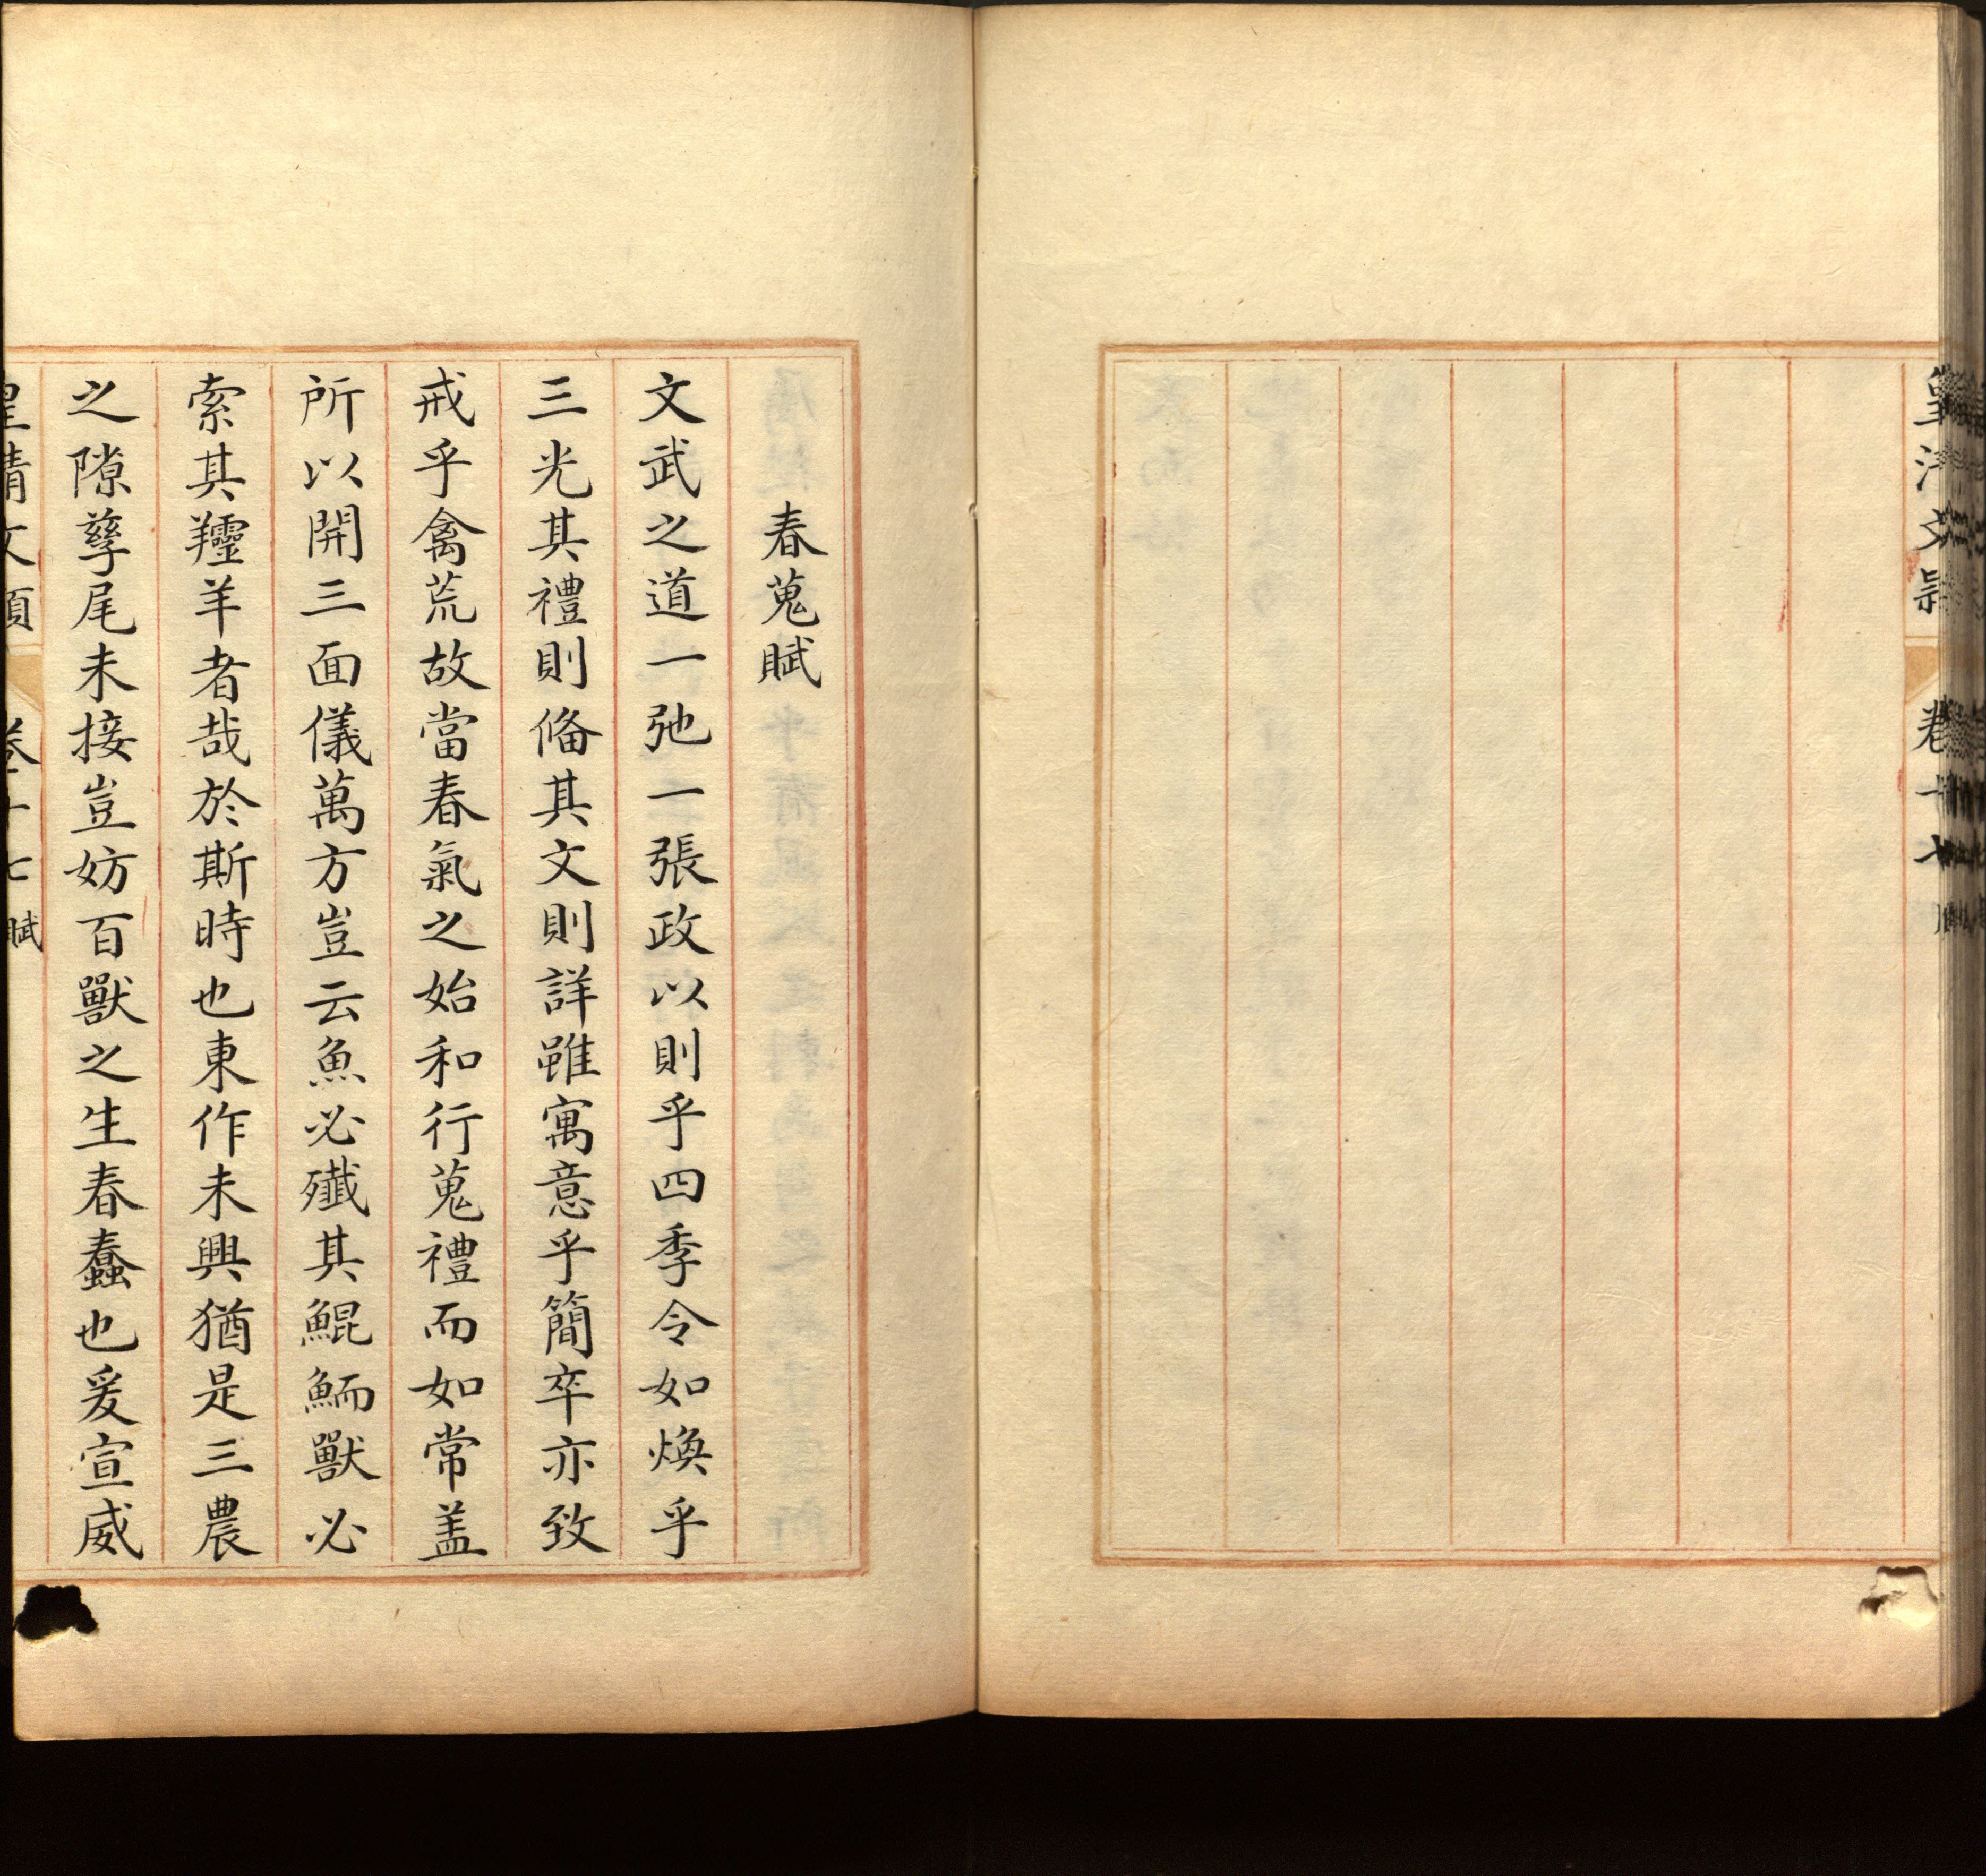 皇清文穎 卷十七 賦
春蒐賦
文武之道一弛一張政以則乎四季令如煥乎
三光其禮則俻其文則詳雖寓意乎簡卒亦致
戒乎禽荒故當春氣之始和行蒐禮而如常盖
所以開三面儀萬方豈云魚必殲其鯤鮞獸必
索其羷羊者哉於斯時也東作未興猶是三農
之隙孳尾未接豈妨百獸之生春蠢也爰宣威
皇清文穎 卷十七 賦